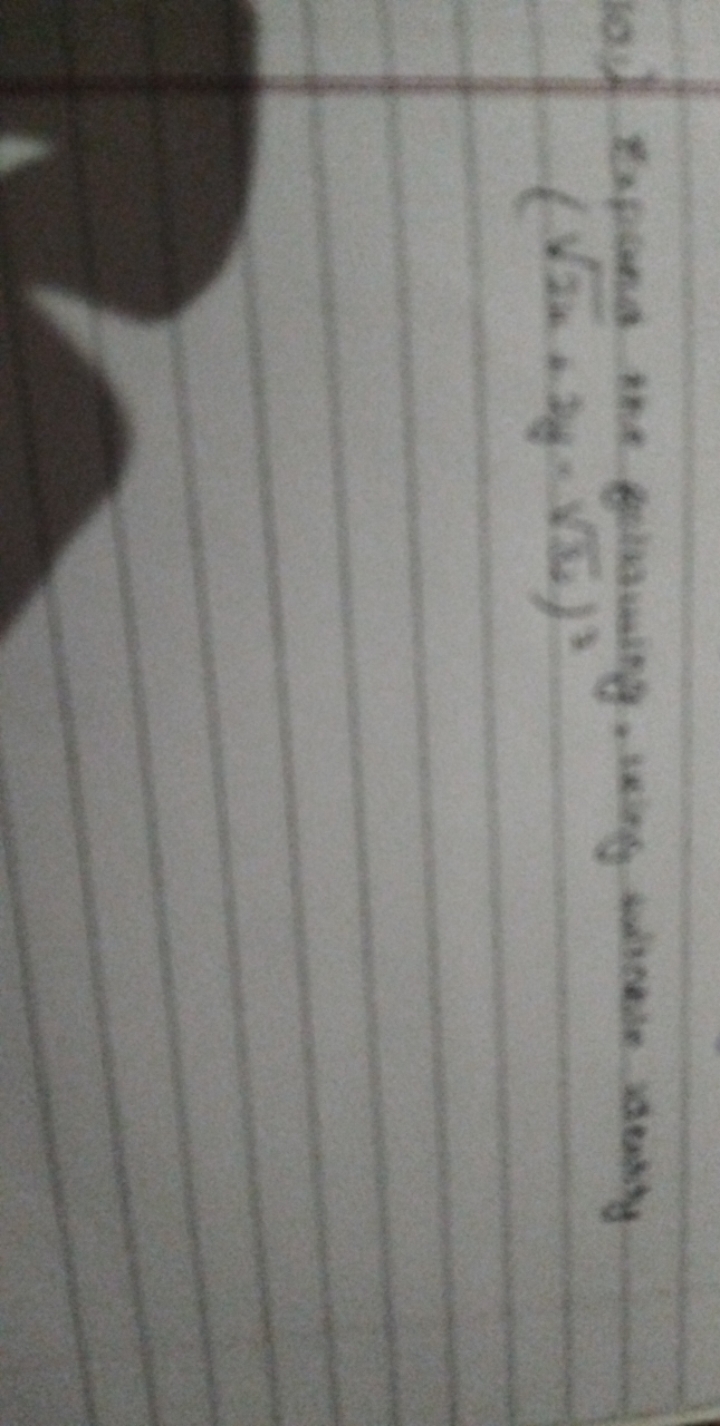 10.) Expand the following using suitable identity
(√2x + 3y - √5z)²